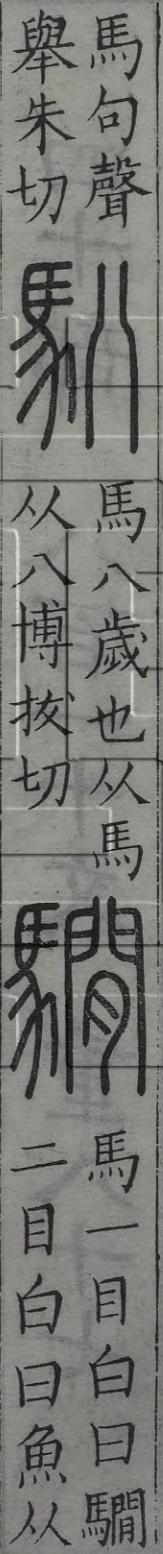 馬句聲
舉朱切
馬八歲也从馬
从八博拔切
馬一目白曰
二目白曰魚从